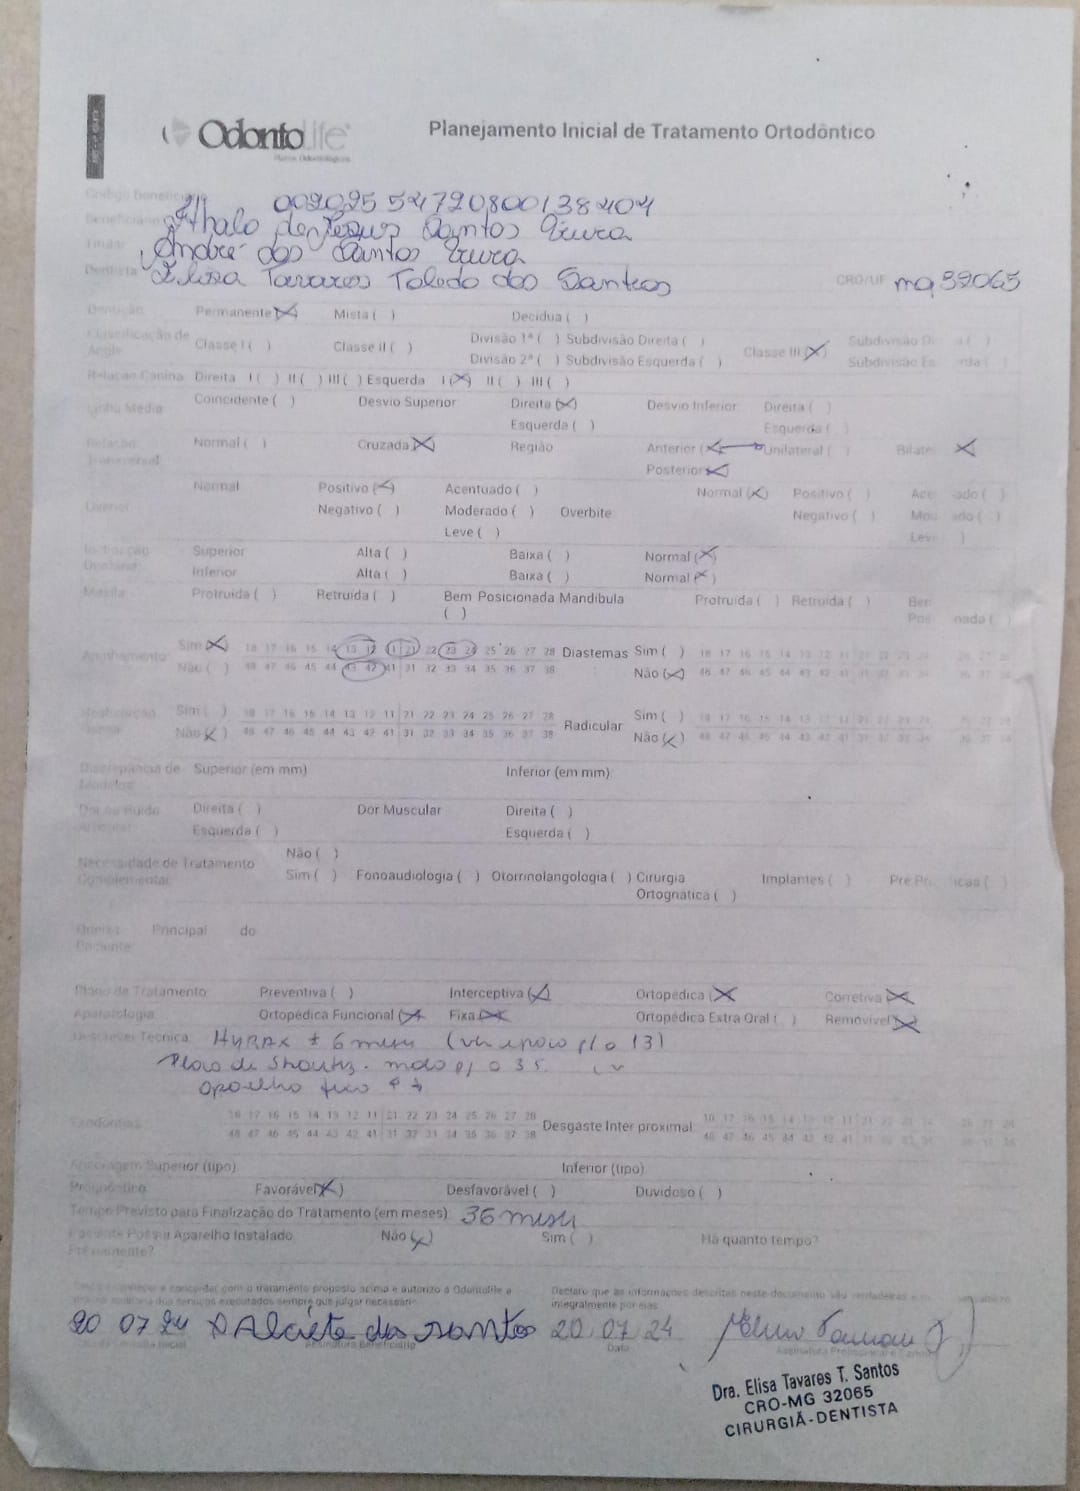 OdontoLife
Planos Odontológicos
Planejamento Inicial de Tratamento Ortodôntico
Código Beneficiário 00202554720800138404
Beneficiário Jesus Santos
Titular André dos Santos
Dentista Elisa Tavares Toledo dos Santos CRO/UF mg 32065
Dentição Permanente (X) Mista ( ) Decídua ( )
Classificação de Angle Classe I ( ) Classe II ( ) Divisão 1ª ( ) Subdivisão Direita ( ) Classe III (X) Subdivisão
Divisão 2ª ( ) Subdivisão Esquerda ( ) Subdivisão
Relação Canina Direita I ( ) II ( ) III ( ) Esquerda I (X) II ( ) III ( )
Linha Média Coincidente ( ) Desvio Superior Direita (X) Desvio Inferior Direita ( )
Esquerda ( ) Esquerda ( )
Relação Transversal Normal ( ) Cruzada (X) Região Anterior (X) Unilateral ( ) X
Posterior (X)
Normal Positivo (X) Acentuado ( ) Normal (X) Positivo ( )
Negativo ( ) Moderado ( ) Overbite Negativo ( )
Leve ( )
Superior Alta ( ) Baixa ( ) Normal (X)
Inferior Alta ( ) Baixa ( ) Normal (X)
Maxila Protruida ( ) Retruida ( ) Bem Posicionada Mandibula Protruida ( ) Retruida ( )
( )
Apinhamento Sim (X) 18 17 16 15 14 13 12 11 21 22 23 24 25 26 27 28 Diastemas Sim ( ) 18 17 16 15 14 13 12 11 21 22 23 24 26 27 28
Não ( ) 48 47 46 45 44 43 42 41 31 32 33 34 35 36 37 38 Não (X) 48 47 46 45 44 43 42 41 31 32 33 34 36 37 38
Sim ( ) 18 17 16 15 14 13 12 11 21 22 23 24 25 26 27 28 Radicular Sim ( ) 18 17 16 15 14 13 12 11 21 22 23 24
Não (X) 48 47 46 45 44 43 42 41 31 32 33 34 35 36 37 38 Não (X) 48 47 46 45 44 43 42 41 31 32 33 34 36 37 38
Discrepância de Modelos Superior (em mm) Inferior (em mm)
Direita ( ) Dor Muscular Direita ( )
Esquerda ( ) Esquerda ( )
Não ( )
Necessidade de Tratamento Complementar Sim ( ) Fonoaudiologia ( ) Otorrinolangologia ( ) Cirurgia Implantes ( )
Ortognatica ( )
Queixa Principal do
Paciente
Plano de Tratamento Preventiva ( ) Interceptiva (X) Ortopédica (X) Corretiva (X)
Aparatologia Ortopédica Funcional (X) Fixa (X) Ortopédica Extra Oral ( ) Removível (X)
Descrever Técnica Hyrax ± 6 meses p/ o 13)
p/ o 35.
18 17 16 15 14 13 12 11 21 22 23 24 25 26 27 28 Desgaste Inter proximal 18 17 16 15 14 13 12 11 21 22 23 24
48 47 46 45 44 43 42 41 31 32 33 34 35 36 37 38
Ancoragem Superior (tipo) Inferior (tipo)
Prognóstico Favorável (X) Desfavorável ( ) Duvidoso ( )
Tempo Previsto para Finalização do Tratamento (em meses) 36 meses
Paciente Possui Aparelho Instalado Não (X) Sim ( ) Há quanto tempo?
concordar com o tratamento proposto acima e autorizo a Odontolife a Declaro que as informações descritas neste documento são verdadeiras
executados sempre que julgar necessário integralmente por elas
20 07 24 dos santos 20.07.24
Assinatura Beneficiário Data
Dra. Elisa Tavares T. Santos
CRO-MG 32065
CIRURGIÃ-DENTISTA